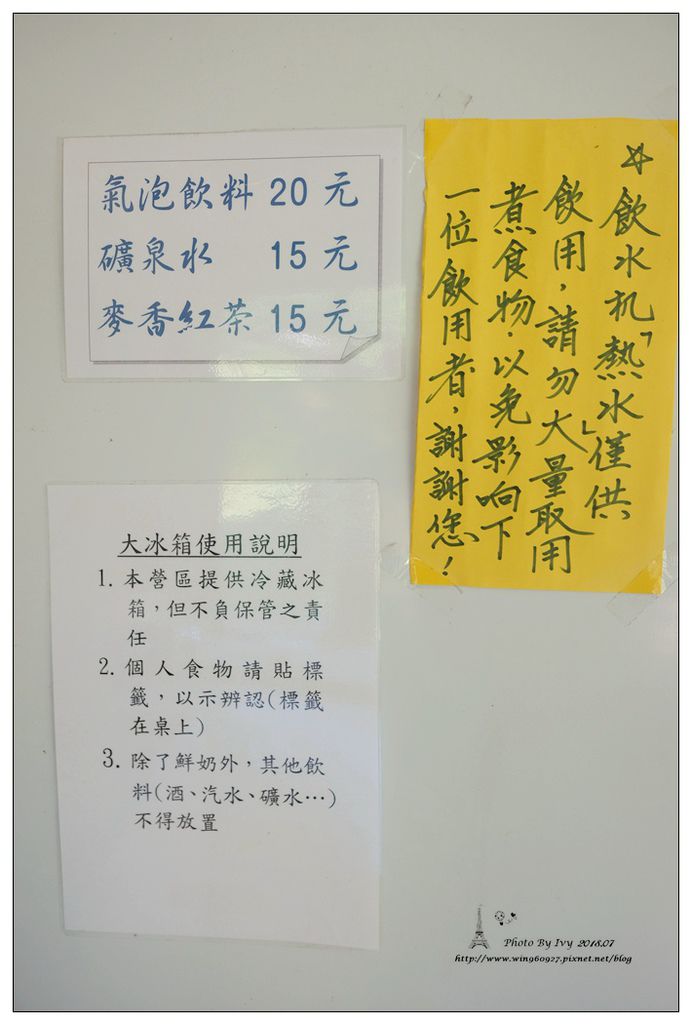 氣泡飲料 20 元
礦泉水 15 元
麥香紅茶 15 元
☆飲水机「熱水」僅供
飲用，請勿大量取用
煮食物．以免影响下
一位飲用者，謝謝您！
大冰箱使用說明
1. 本營區提供冷藏冰
箱，但不負保管之責
任
2. 個人食物請貼標
籤，以示辨認(標籤
在桌上)
3. 除了鮮奶外，其他飲
料(酒、汽水、礦水…)
不得放置
Photo By Ivy 2018.07
http://www.win960927.pixnet.net/blog